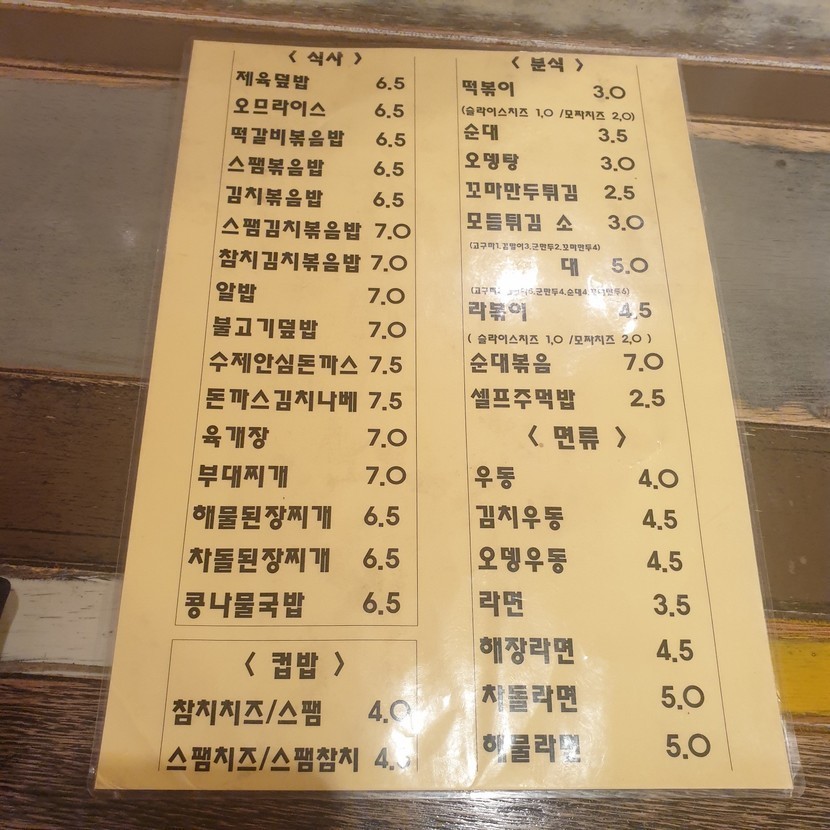 < 식사 >
제육덮밥 6.5
오므라이스 6.5
떡갈비볶음밥 6.5
스팸볶음밥 6.5
김치볶음밥 6.5
스팸김치볶음밥 7.0
참치김치볶음밥 7.0
알밥 7.0
불고기덮밥 7.0
수제안심돈까스 7.5
돈까스김치나베 7.5
육개장 7.0
부대찌개 7.0
해물된장찌개 6.5
차돌된장찌개 6.5
콩나물국밥 6.5
< 컵밥 >
참치치즈/스팸 4.0
스팸치즈/스팸참치
< 분식 >
떡볶이 3.0
(슬라이스치즈 1,0 /모짜치즈 2,0)
순대 3.5
오뎅탕 3.0
꼬마만두튀김 2.5
모듬튀김 소 3.0
(고구마1,김말이3,군만두2,꼬마만두4)
대 5.0
군만두4,순대4,
라볶이 4.5
( 슬라이스치즈 1,0 /모짜치즈 2,0 )
순대볶음 7.0
셀프주먹밥 2.5
< 면류 >
우동 4.0
김치우동 4.5
오뎅우동 4.5
라면 3.5
해장라면 4.5
차돌라면 5.0
해물라면 5.0